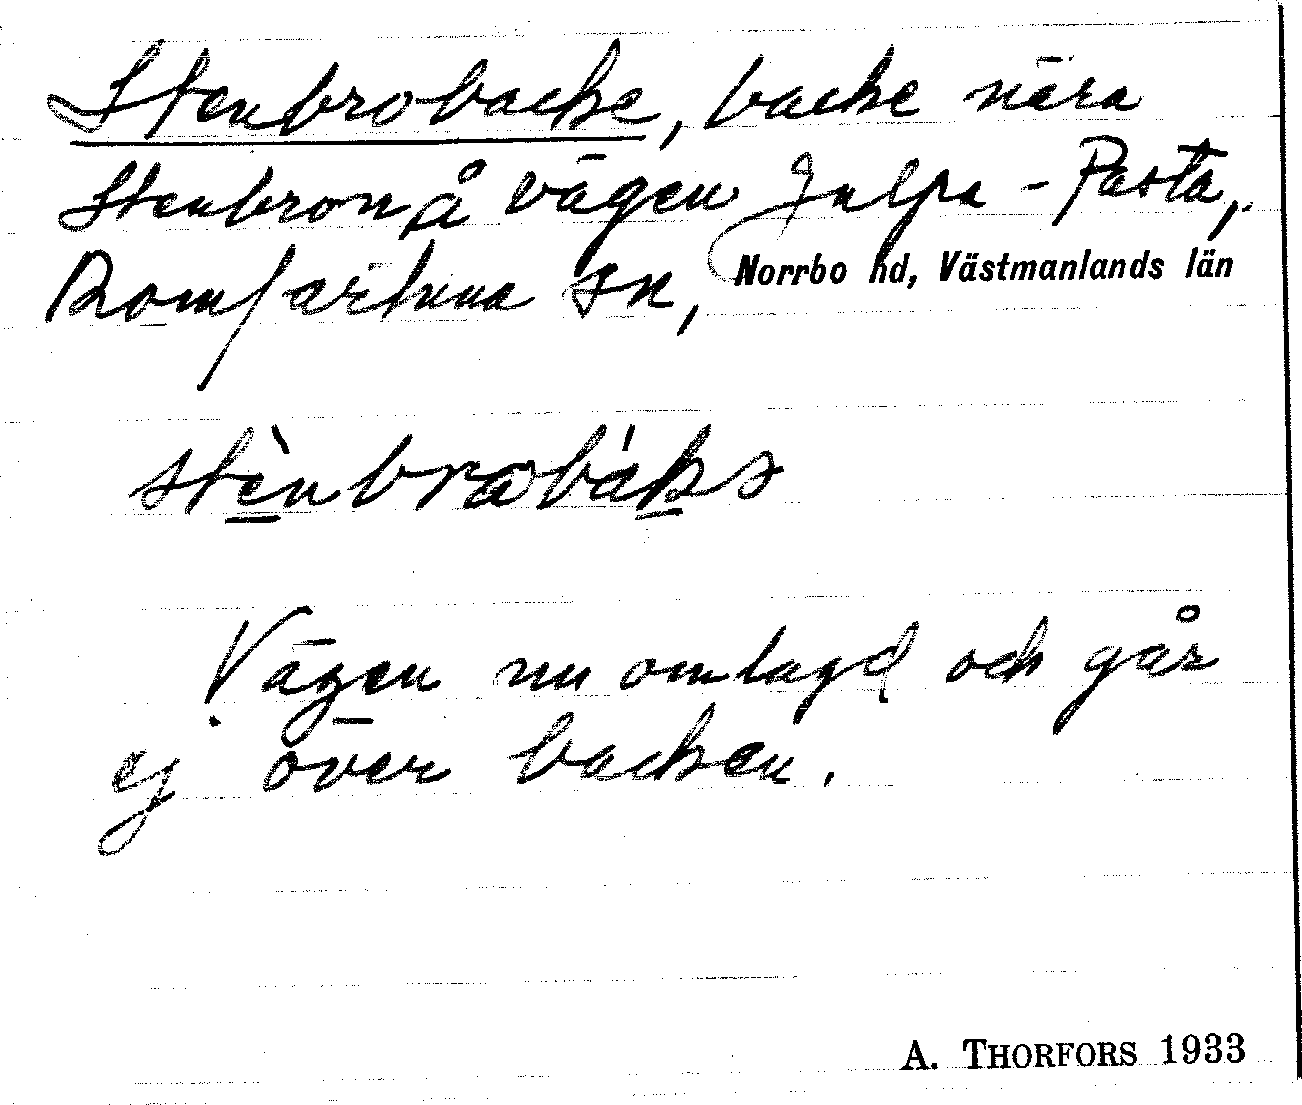 Stenbrobacke, backe nära
Stenbron å vägen Julpa - Pasta,
Romfartuna sn, Norrbo hd, Västmanlands län
stènbrωbáks
Vägen nu omlagd och går
ej över backen.
A. THORFORS 1933